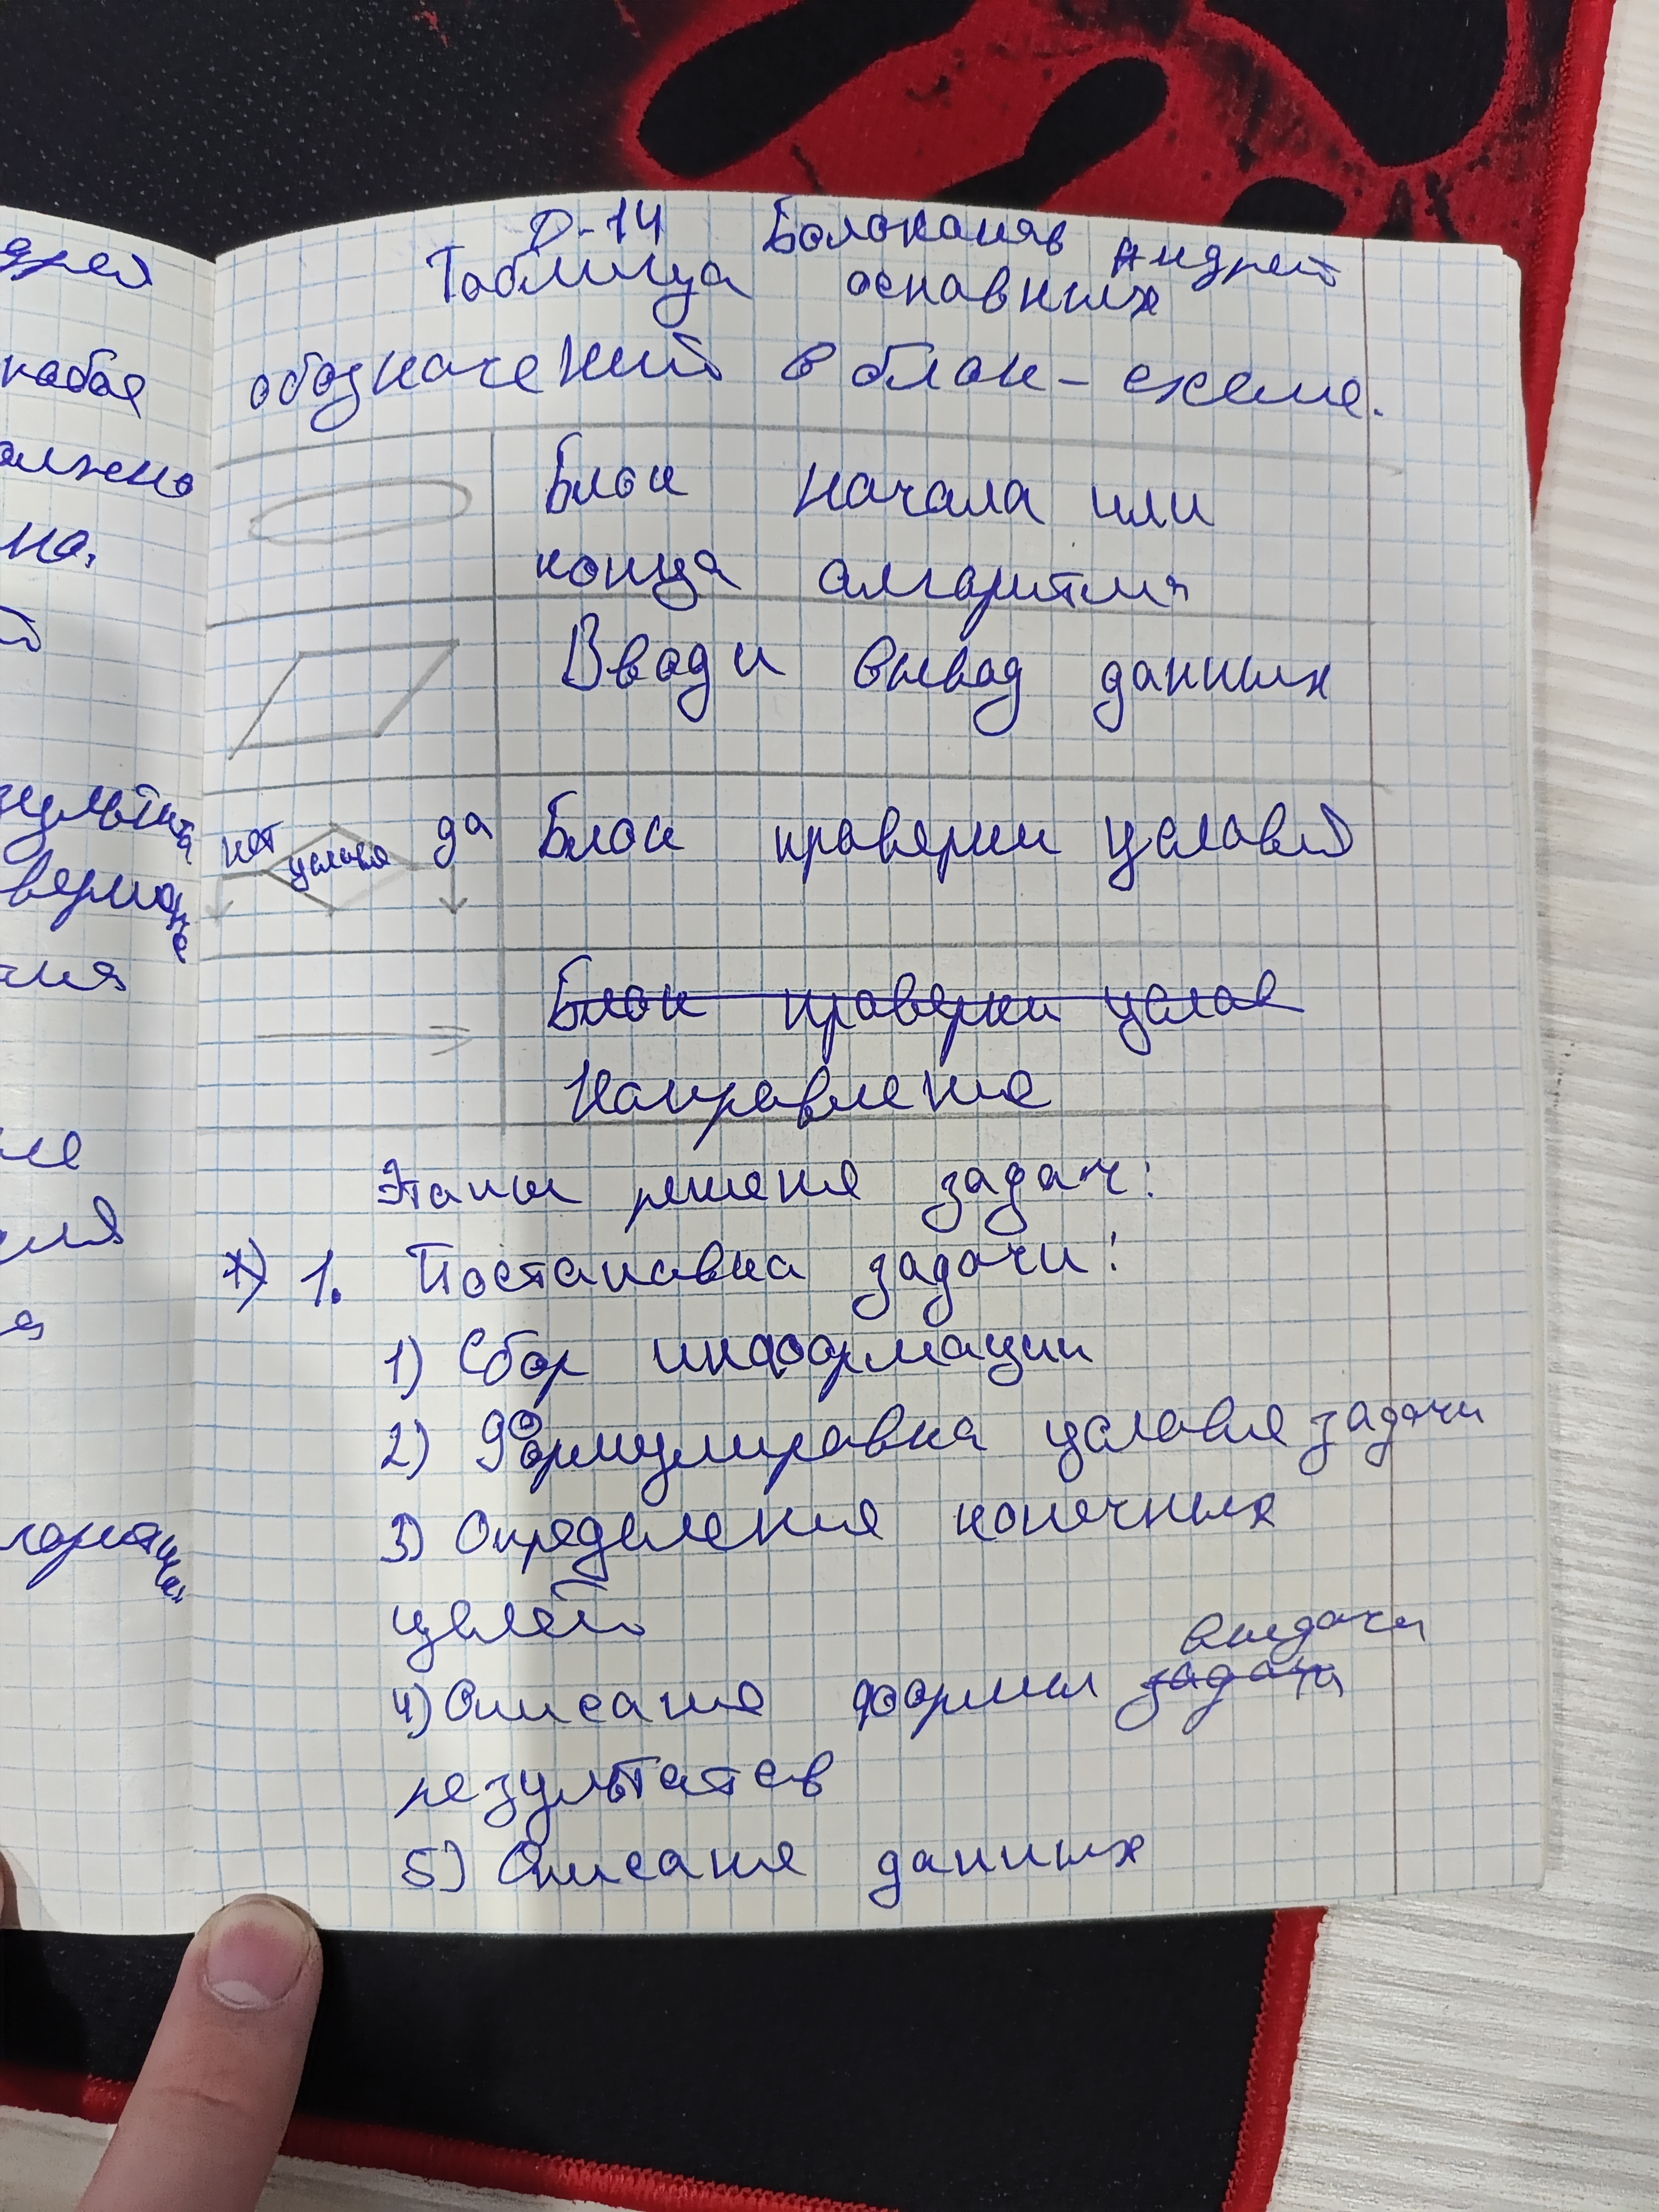 Д-14 Болоканяв Андрей
Таблица основных
обозначений в блок-схеме.
Блок начала или
конца алгоритма
Ввод и вывод данных
нет условие да Блок проверки условий
Блок проверки услов
Направление
Этапы решения задач:
*) 1. Постановка задачи:
1) Сбор информации
2) Формулировка условие задачи
3) Определения конечных
целей
выдачи
4) Описание формы задачи
результатов
5) Описание данных